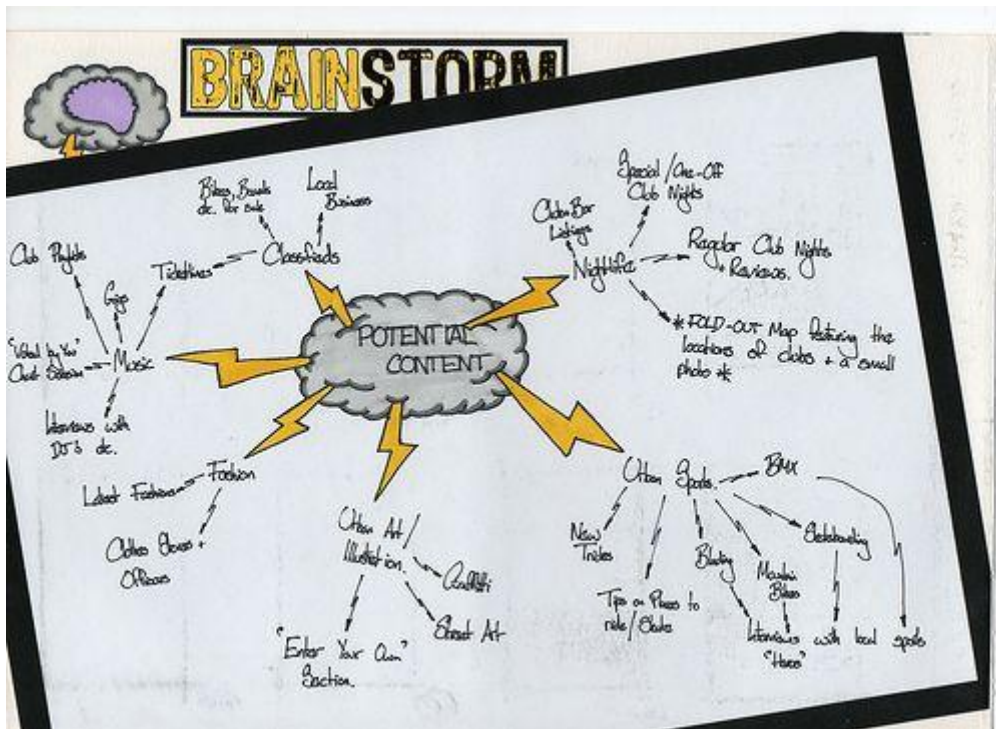 BRAINSTORM
POTENTIAL
CONTENT
Classifieds
Bikes, Boards
etc. For Sale
Local
Business
Music
Club Playlists
Gigs
"Voted by You"
Chart
Interviews with
DJ's etc.
Fashion
Latest Fashions
Clothes Stores +
Urban Art /
Illustration.
Graffiti
Street Art
"Enter Your Own"
Section.
Nightlife
Listings
Special / One-Off
Club Nights
Regular Club Nights
+ Reviews.
* FOLD-OUT Map featuring the
locations of clubs + a small
photo *
Urban Sports.
BMX
Skateboarding
Mountain
Bikes
Blading
New
Tricks
Tips on Places to
ride / Skate
Interviews with local sports
"Heroes"